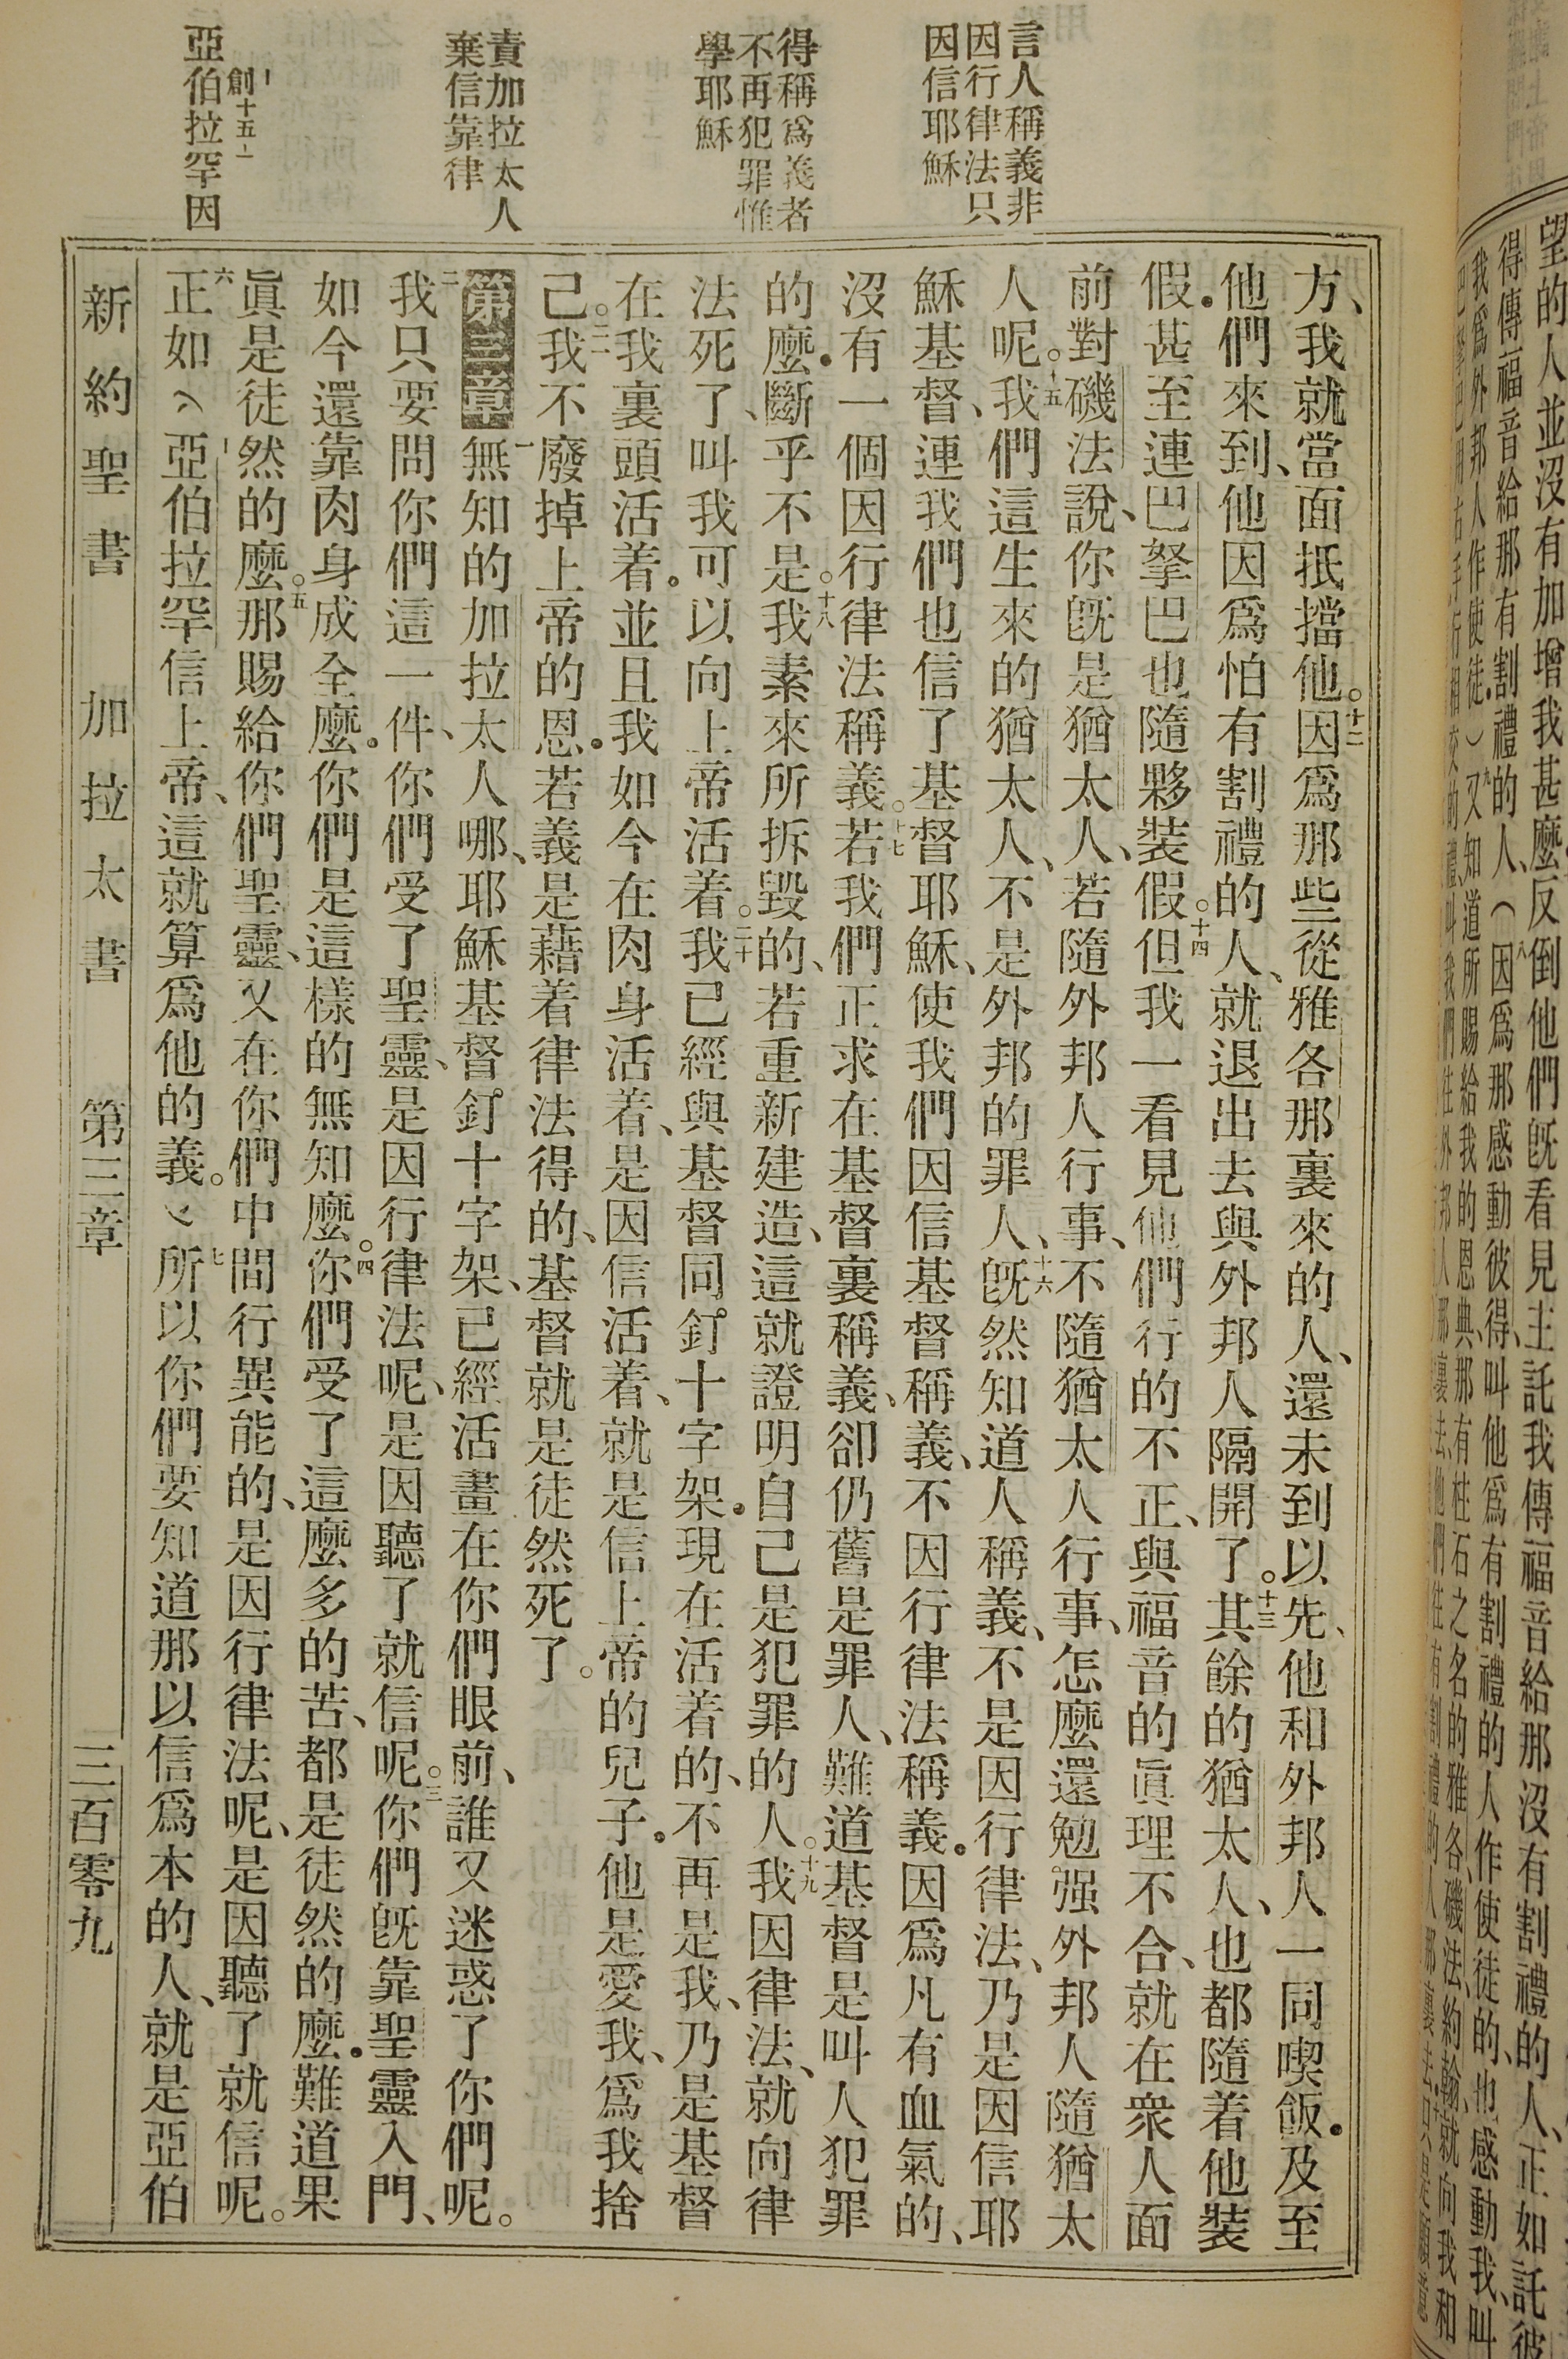 言人稱義非
因行律法只
因信耶穌
得稱爲義者
不再犯罪惟
學耶穌
責加拉太人
棄信靠律
創十五
亞伯拉罕因
方、我就當面抵擋他。十二因爲那些從雅各那裏來的人、還未到以先、他和外邦人一同喫飯．及至
他們來到、他因爲怕有割禮的人、就退出去與外邦人隔開了。十三其餘的猶太人、也都隨着他裝
假．甚至連巴拏巴也隨夥裝假。十四但我一看見他們行的不正、與福音的眞理不合、就在衆人面
前對磯法說、你旣是猶太人、若隨外邦人行事、不隨猶太人行事、怎麼還勉强外邦人隨猶太
人呢。十五我們這生來的猶太人、不是外邦的罪人、十六旣然知道人稱義、不是因行律法、乃是因信耶
穌基督、連我們也信了基督耶穌、使我們因信基督稱義、不因行律法稱義．因爲凡有血氣的、
沒有一個因行律法稱義。十七若我們正求在基督裏稱義、卻仍舊是罪人、難道基督是叫人犯罪
的麼．斷乎不是。十八我素來所拆毀的、若重新建造、這就證明自己是犯罪的人。十九我因律法、就向律
法死了、叫我可以向上帝活着。二十我已經與基督同釘十字架．現在活着的、不再是我、乃是基督
在我裏頭活着．並且我如今在肉身活着、是因信活着、就是信上帝的兒子．他是愛我、爲我捨
己。二一我不廢掉上帝的恩．若義是藉着律法得的、基督就是徒然死了。
第三章 一無知的加拉太人哪、耶穌基督釘十字架、已經活畫在你們眼前、誰又迷惑了你們呢。
二我只要問你們這一件、你們受了聖靈、是因行律法呢、是因聽了就信呢。三你們旣靠聖靈入門、
如今還靠肉身成全麼．你們是這樣的無知麼。四你們受了這麼多的苦、都是徒然的麼．難道果
眞是徒然的麼。五那賜給你們聖靈、又在你們中間行異能的、是因行律法呢、是因聽了就信呢。
六正如〈亞伯拉罕信上帝、這就算爲他的義。〉七所以你們要知道那以信爲本的人、就是亞伯
新約聖書 加拉太書 第三章 三百零九